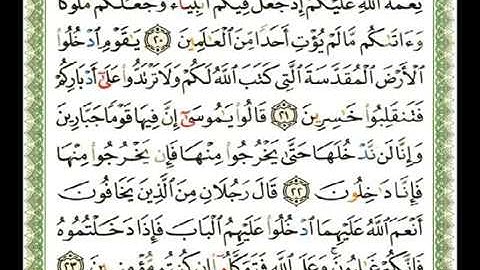 نِعْمَةَ ٱللَّهِ عَلَيْكُمْ إِذْ جَعَلَ فِيكُمْ أَنۢبِيَآءَ وَجَعَلَكُم مُّلُوكًا
وَءَاتَىٰكُم مَّا لَمْ يُؤْتِ أَحَدًا مِّنَ ٱلْعَٰلَمِينَ ٢٠ يَٰقَوْمِ ٱدْخُلُوا۟
ٱلْأَرْضَ ٱلْمُقَدَّسَةَ ٱلَّتِى كَتَبَ ٱللَّهُ لَكُمْ وَلَا تَرْتَدُّوا۟ عَلَىٰٓ أَدْبَارِكُمْ
فَتَنقَلِبُوا۟ خَٰسِرِينَ ٢١ قَالُوا۟ يَٰمُوسَىٰٓ إِنَّ فِيهَا قَوْمًا جَبَّارِينَ
وَإِنَّا لَن نَّدْخُلَهَا حَتَّىٰ يَخْرُجُوا۟ مِنْهَا فَإِن يَخْرُجُوا۟ مِنْهَا
فَإِنَّا دَٰخِلُونَ ٢٢ قَالَ رَجُلَانِ مِنَ ٱلَّذِينَ يَخَافُونَ
أَنْعَمَ ٱللَّهُ عَلَيْهِمَا ٱدْخُلُوا۟ عَلَيْهِمُ ٱلْبَابَ فَإِذَا دَخَلْتُمُوهُ
فَإِنَّكُمْ غَٰلِبُونَ ۚ وَعَلَى ٱللَّهِ فَتَوَكَّلُوٓا۟ إِن كُنتُم مُّؤْمِنِينَ ٢٣